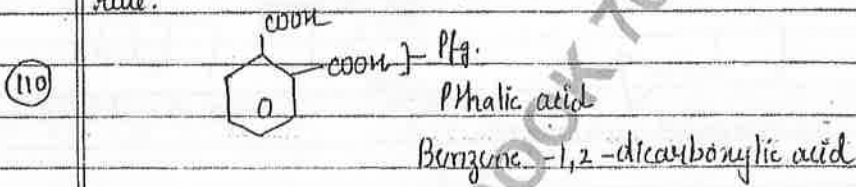 COOH
(110) COOH ]- Pfg.
Pthalic acid
Benzene -1,2 -dicarboxylic acid